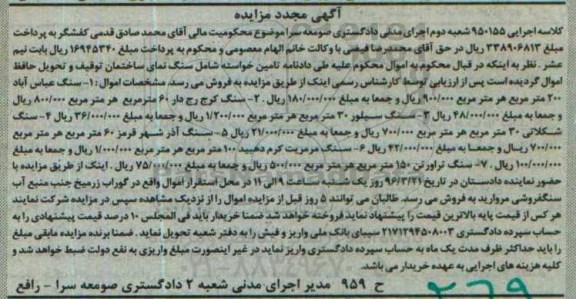 آگهی مجدد مزایده
کلاسه اجرایی ۹۵۰۱۵۵ شعبه دوم اجرای مدنی دادگستری صومعه سرا موضوع محکومیت مالی آقای محمد صادق قدمی کفشگر به پرداخت
مبلغ ۳۳۸۹۰۶۸۱۳ ریال در حق آقای محمدرضا فیضی با وکالت خانم الهام معصومی و محکوم به پرداخت مبلغ ۱۶۹۴۵۳۴۰ ریال بابت نیم
عشر. نظر به اینکه در قبال محکوم به اموال محکوم علیه طی دادنامه تامین خواسته شامل سنگ نمای ساختمان توقیف و تحویل حافظ
اموال گردیده است پس از ارزیابی توسط کارشناس رسمی اینک از طریق مزایده به فروش می رسد. مشخصات اموال: ۱- سنگ عباس آباد
۲۰۰ متر مربع هر متر مربع ۹۰۰/۰۰۰ ریال و جمعا به مبلغ ۱۸۰/۰۰۰/۰۰۰ ریال ۲- سنگ کرج رج دار ۶۰ مترمربع هر متر مربع ۸۰۰/۰۰۰ ریال
و جمعا به مبلغ ۴۸/۰۰۰/۰۰۰ ریال ۳- سنگ سیلور ۳۰ متر مربع هر متر مربع ۱/۲۰۰/۰۰۰ ریال و جمعا به مبلغ ۳۶/۰۰۰/۰۰۰ ریال ۴- سنگ
شکلاتی ۳۰ متر مربع هر متر مربع ۷۰۰/۰۰۰ ریال و جمعا به مبلغ ۲۱/۰۰۰/۰۰۰ ریال ۵- سنگ آذر شهر قرمز ۶۰ متر مربع هر متر مربع
۷۰۰/۰۰۰ ریال و جمعا به مبلغ ۴۲/۰۰۰/۰۰۰ ریال ۶- سنگ مرمریت کرم دهبید ۱۰۰ متر مربع هر متر مربع ۱/۰۰۰/۰۰۰ ریال و جمعا به مبلغ
۱۰۰/۰۰۰/۰۰۰ ریال. ۷- سنگ تراورتن ۱۵۰ متر مربع هر متر مربع ۵۰۰/۰۰۰ ریال و جمعا به مبلغ ۷۵/۰۰۰/۰۰۰ ریال. اینک از طریق مزایده با
حضور نماینده دادستان در تاریخ ۹۶/۳/۲۱ روز یک شنبه ساعت ۹ الی ۱۱ در محل استقرار اموال واقع در گوراب زرمیخ جنب منبع آب
سنگفروشی مروارید به فروش می رسد. طالبان می توانند ۵ روز قبل از مزایده اموال را از نزدیک مشاهده سپس در مزایده شرکت نمایند
هر کس از قیمت پایه بالاترین قیمت را پیشنهاد نماید فروخته خواهد شد ضمنا خریدار باید فی المجلس ۱۰ درصد قیمت پیشنهادی را به
حساب سپرده دادگستری ۲۱۷۱۲۹۴۵۰۸۰۰۳ سیبای بانک ملی واریز و فیش را به دفتر شعبه تحویل نماید. ضمنا برنده مزایده مابقی مبلغ
را باید حداکثر ظرف مدت یک ماه به حساب سپرده دادگستری واریز نماید در غیر اینصورت مبلغ واریزی به نفع دولت ضبط خواهد شد و
کلیه هزینه های اجرایی به عهده خریدار می باشد.
ح ۹۵۹ مدیر اجرای مدنی شعبه ۲ دادگستری صومعه سرا - رافع
۲۶۹